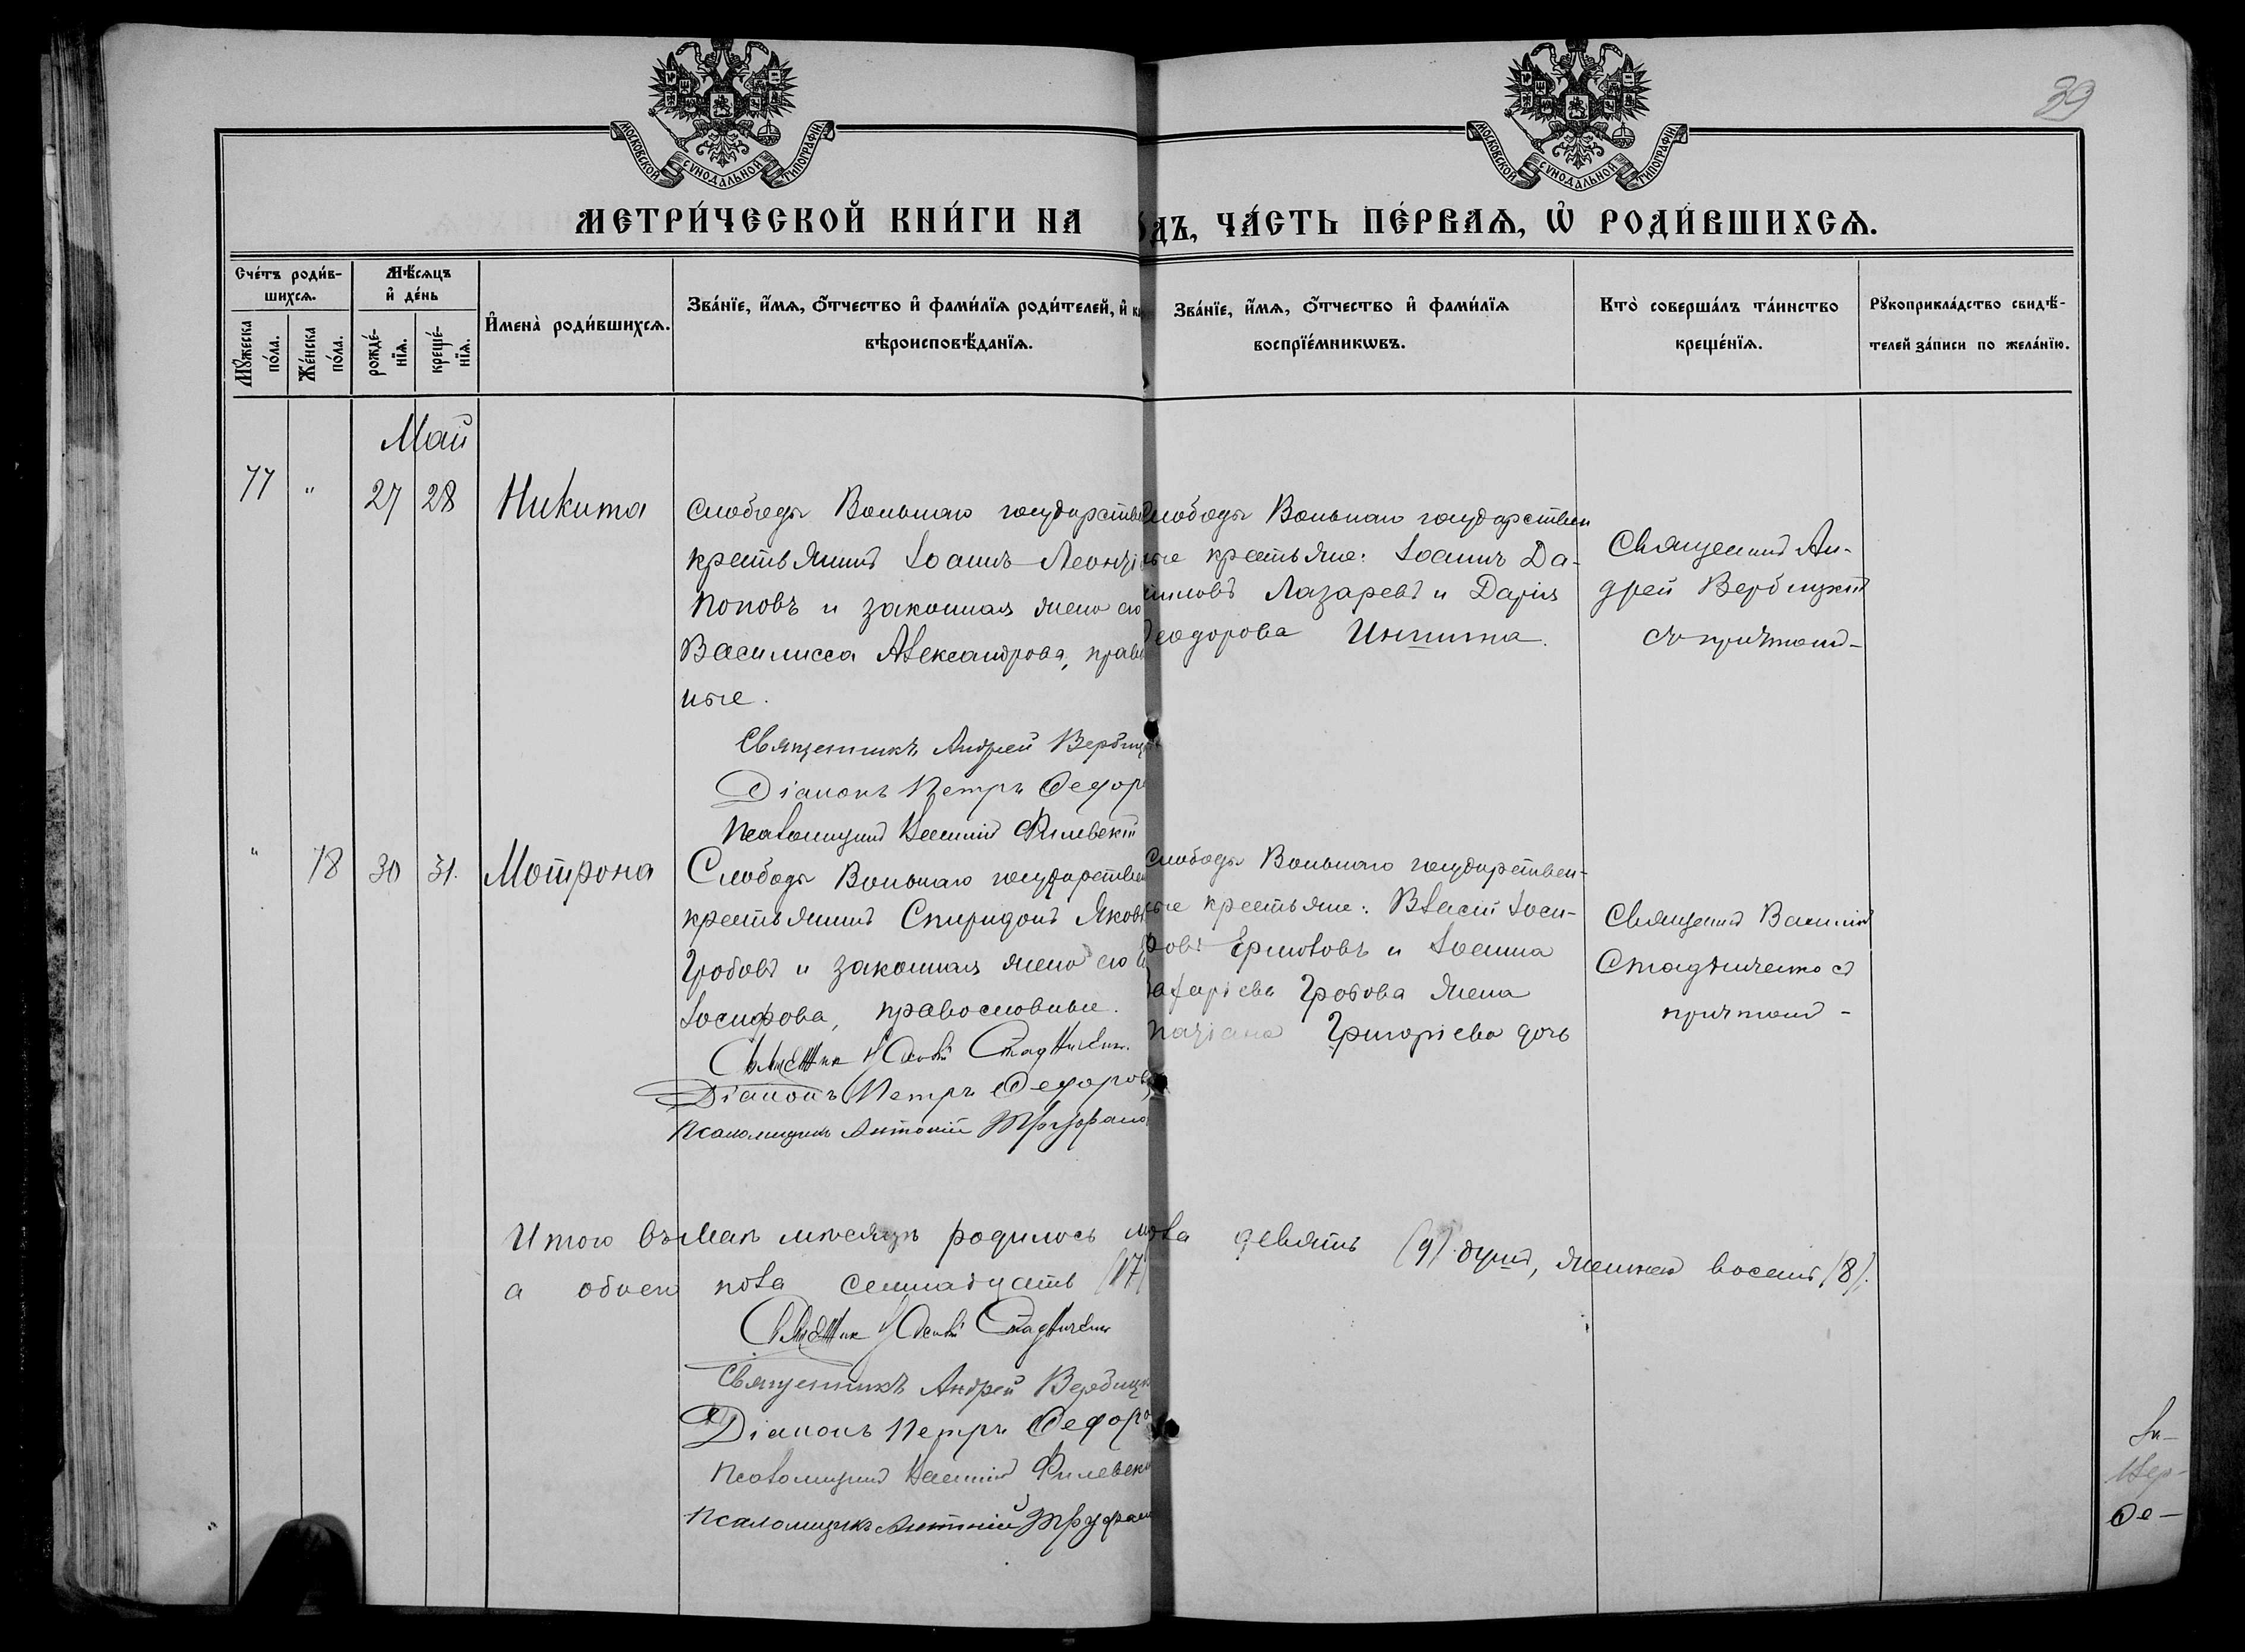 39
МОСКОВСКОЙ СѴНОДАЛЬНОЙ ТИПОГРАФІИ
МОСКОВСКОЙ СѴНОДАЛЬНОЙ ТИПОГРАФІИ
МЕТРИ́ЧЕСКОЙ КНИ́ГИ НА
ДЪ, ЧА́СТЬ ПЕ́РВАѦ, Ѡ҆ РОДИ́ВШИХСѦ.
Сче́тъ роди́в-
шихсѧ.
Мꙋ́жеска
по́ла.
Же́нска
по́ла.
Мѣ́сѧцъ
и҆ де́нь
рожде́-
нїѧ.
креще́-
нїѧ.
И҆мена̀ роди́вшихсѧ.
Зва́нїе, и҆́мѧ, ѻ҆́тчество и҆ фами́лїѧ роди́телей, и҆
вѣроисповѣ́данїѧ.
Зва́нїе, и҆́мѧ, ѻ҆́тчество и҆ фами́лїѧ
воспрїе́мникѡвъ.
Кто̀ соверша́лъ та́инство
креще́нїѧ.
Рꙋкоприкла́дство свидѣ́-
телей за́писи по жела́нїю.
Май
77 " 27 28 Никита
Слободы Вольнаго государстве
крестьянинъ Іоаннъ Леонті
Поповъ и законная жена его
Василисса Александрова, право
ные.
Священникъ Андрей Вербиц
Діаконъ Петръ Федоро
Псаломщикъ Василій Филевскій
Слободы Вольнаго государствен
ые крестьяне: Іоаннъ Да-
ниловъ Лазаревъ и Дарія
Феодорова
Священникъ Ан-
дрей Вербицкій
съ причтомъ-
" 78 30 31. Мотрона
Слободы Вольнаго государствен
крестьянинъ Спиридонъ Яковл
Гробовъ и законная жена его
Іосифова, православные.
Діаконъ Петръ Федоров
Псаломщикъ Антоній Труфано
Слободы Вольнаго государствен-
ные крестьяне: Власій Іоси-
фовъ Ермоловъ и Іоанна
Захаріева Гробова жена
Григоріева дочь
Священникъ Василій
Стадниченко съ
причтомъ -
Итого въ Маѣ мѣсяцѣ родилось муж
ска девять (9) душъ, женска восемь (8).
а обоего пола семнадцать (17)
Священникъ Андрей Вербицк
Діаконъ Петръ Федоро
Псаломщикъ Василій Филевск
Псаломщикъ Антоній Труфан
Ѳе-